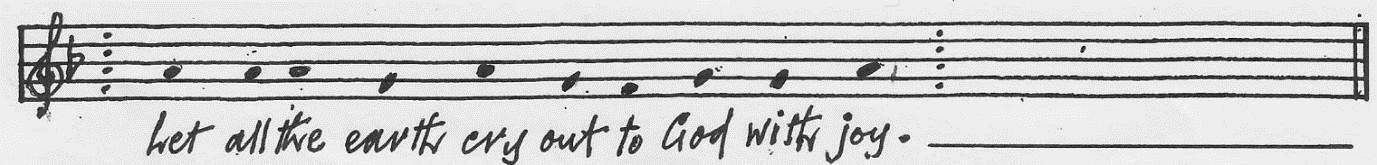 Let all the earth cry out to God with joy.